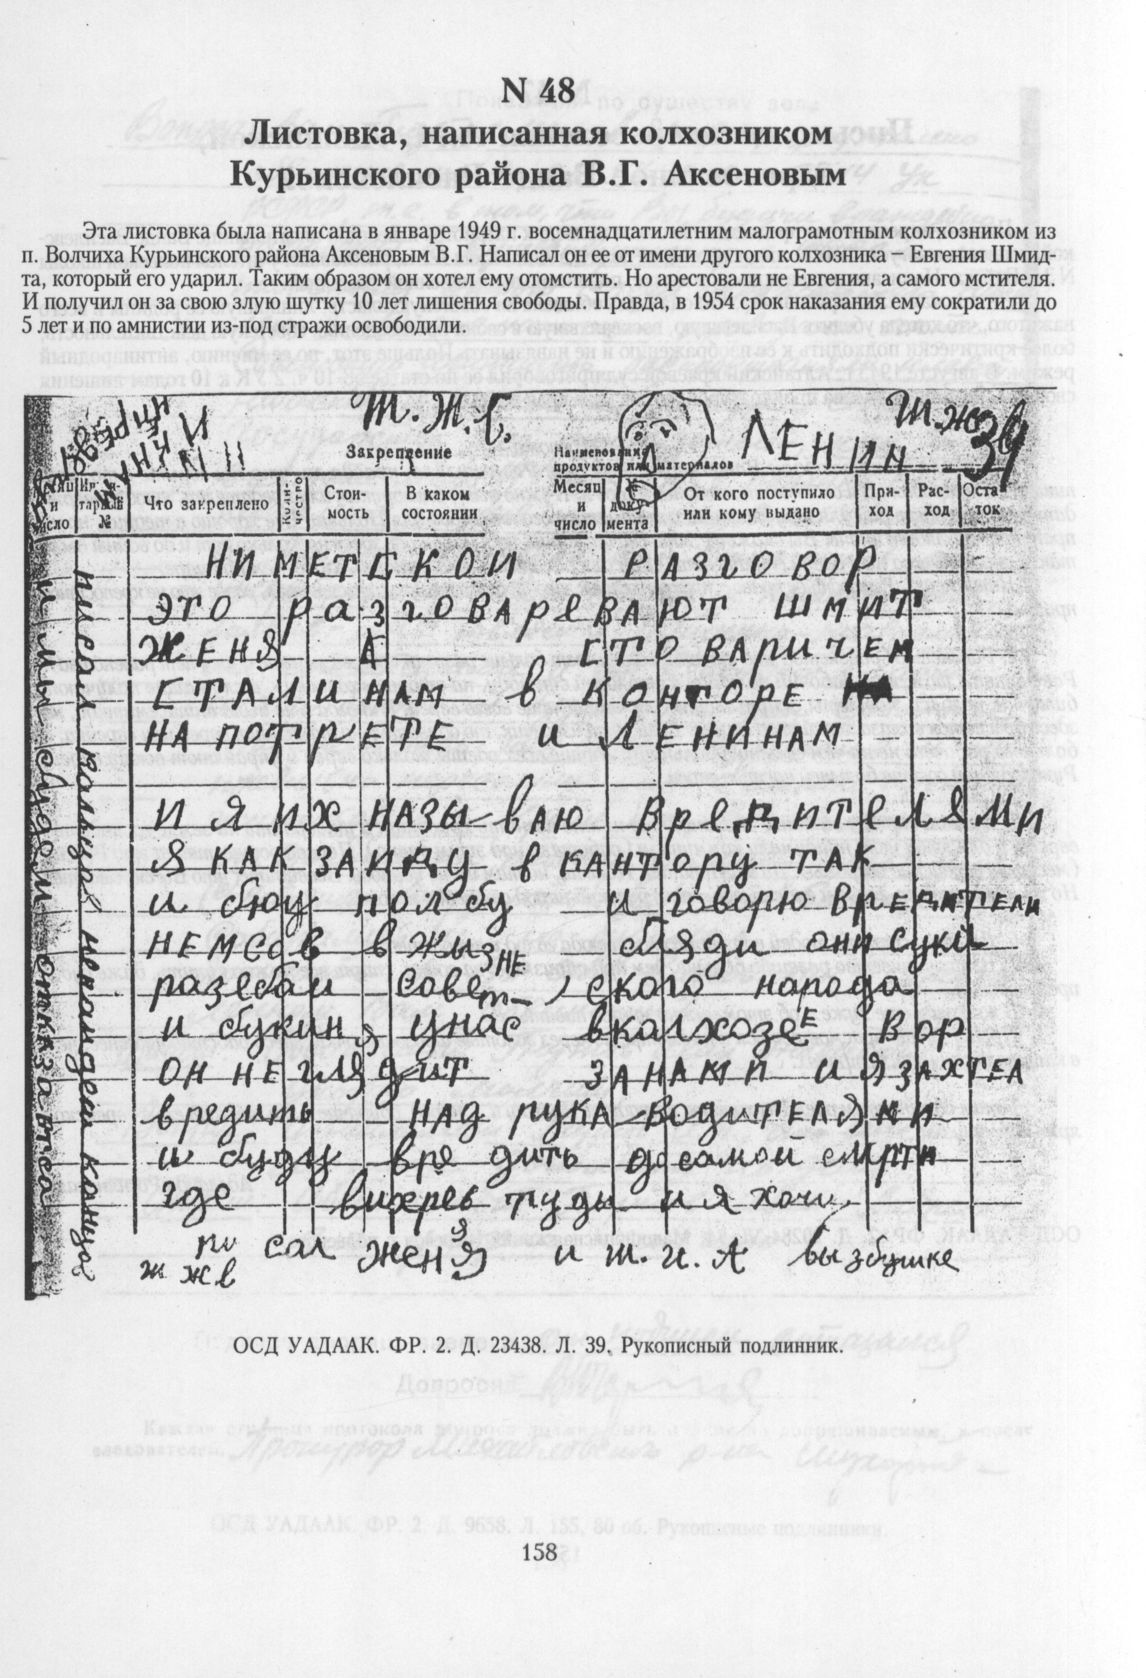 N 48
Листовка, написанная колхозником
Курьинского района В.Г. Аксеновым
Эта листовка была написана в январе 1949 г. восемнадцатилетним малограмотным колхозником из
п. Волчиха Курьинского района Аксеновым В.Г. Написал он ее от имени другого колхозника – Евгения Шмид-
та, который его ударил. Таким образом он хотел ему отомстить. Но арестовали не Евгения, а самого мстителя.
И получил он за свою злую шутку 10 лет лишения свободы. Правда, в 1954 срок наказания ему сократили до
5 лет и по амнистии из-под стражи освободили.
Т. Ж. Г.
ЛЕНИН
39
Закрепление
Наименования
продуктов или материалов
Что закреплено
Коли-
чество
Стои-
мость
В каком
состоянии
Месяц
и
число
№
доку-
мента
От кого поступило
или кому выдано
При-
ход
Рас-
ход
Оста
ток
НИМЕТСКОИ РАЗГОВОР
ЭТО разговАРеВАЮТ ШМИТ
ЖЕНЯ СТОВАРИЧЕМ
СТАЛИНАМ в КОНТОРЕ
НА ПОТРЕТЕ И ЛЕНИНАМ
И Я ИХ НАЗЫВАЮ ВреДИТеЛЯМИ
Я КАК ЗАИДУ в КАНТОРУ ТАК
и бюу полбу и говорю ВРЕДИТЕЛИ
НЕМСОВ ВЖЫЗНЕ бляди они суки
разебаи совет- ского народа
и букин я унас вколхозеЕ ВОР
ОН НЕ ГЛЯДИТ ЗАНАМИ И Я ЗАХТЕЛ
вредить НАД рукАВодиТЕЛЯМИ
и буду вре дить досамой смрти
где вихрев туды и я хочу
пи сал жЕНЯ и ж. и. А вызбушке
ж жв
ОСД УАДААК. ФР. 2. Д. 23438. Л. 39. Рукописный подлинник.
158